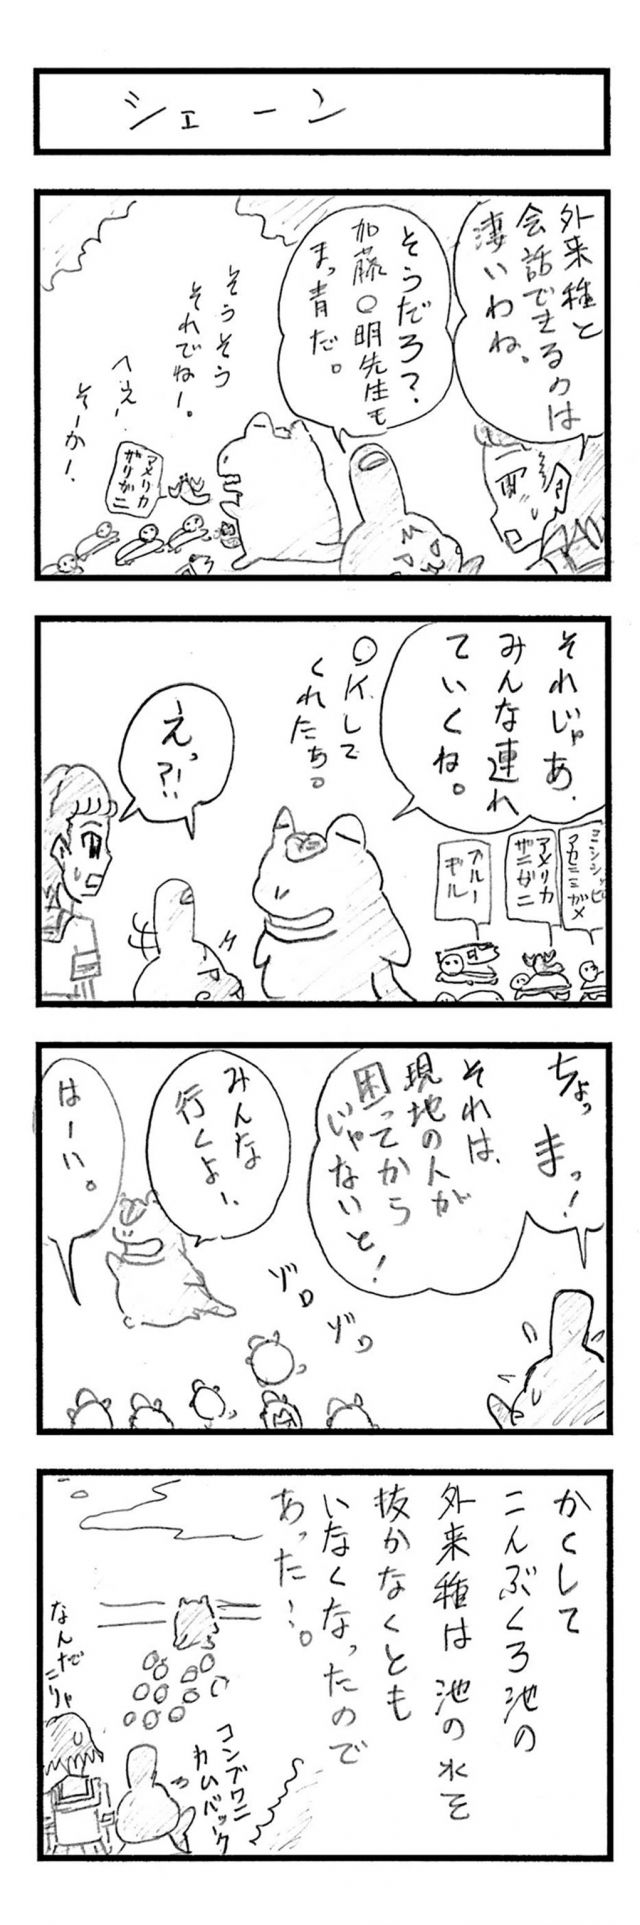 シェーン
外来種と
会話できるのは
凄いわね。
そうだろ？
加藤〇明先生も
まっ青だ。
そうそう
それでねー。
へぇー
そーかー
アメリカ
ザリガニ
それじゃあ、
みんな連れ
ていくね。
〇Kして
くれたち。
えっ?!
ミシシッピ
アカミミガメ
アメリカ
ザリガニ
ブルー
ギル
ちょっ
まっ！
それは、
現地の人が
困ってから
じゃないと！
みんな
行くよー、
はーい。
ゾロ
ゾロ
かくして
こんぶくろ池の
外来種は池の水を
抜かなくとも
いなくなったので
あったー。
なんだ
こりゃ
コンブワニ
カムバック